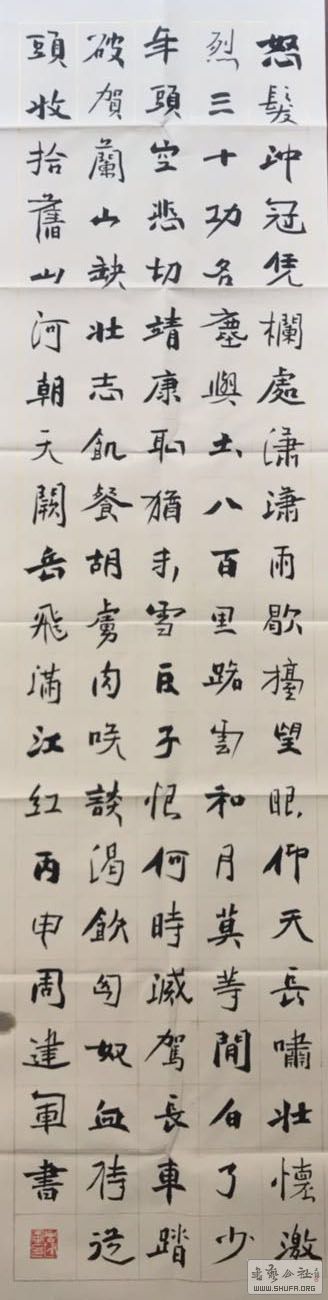 怒髮冲冠凭欄處潇潇雨歇擡望眼仰天長嘯壯懷激
烈三十功名塵與土八百里路雲和月莫等閒白了少
年頭空悲切靖康恥猶未雪臣子恨何時滅駕長車踏
破賀蘭山缺壯志飢餐胡虜肉笑談渴飲匈奴血待從
頭收拾舊山河朝天闕岳飛滿江红丙申周建軍書
書藝公社
WWW.SHUFA.ORG